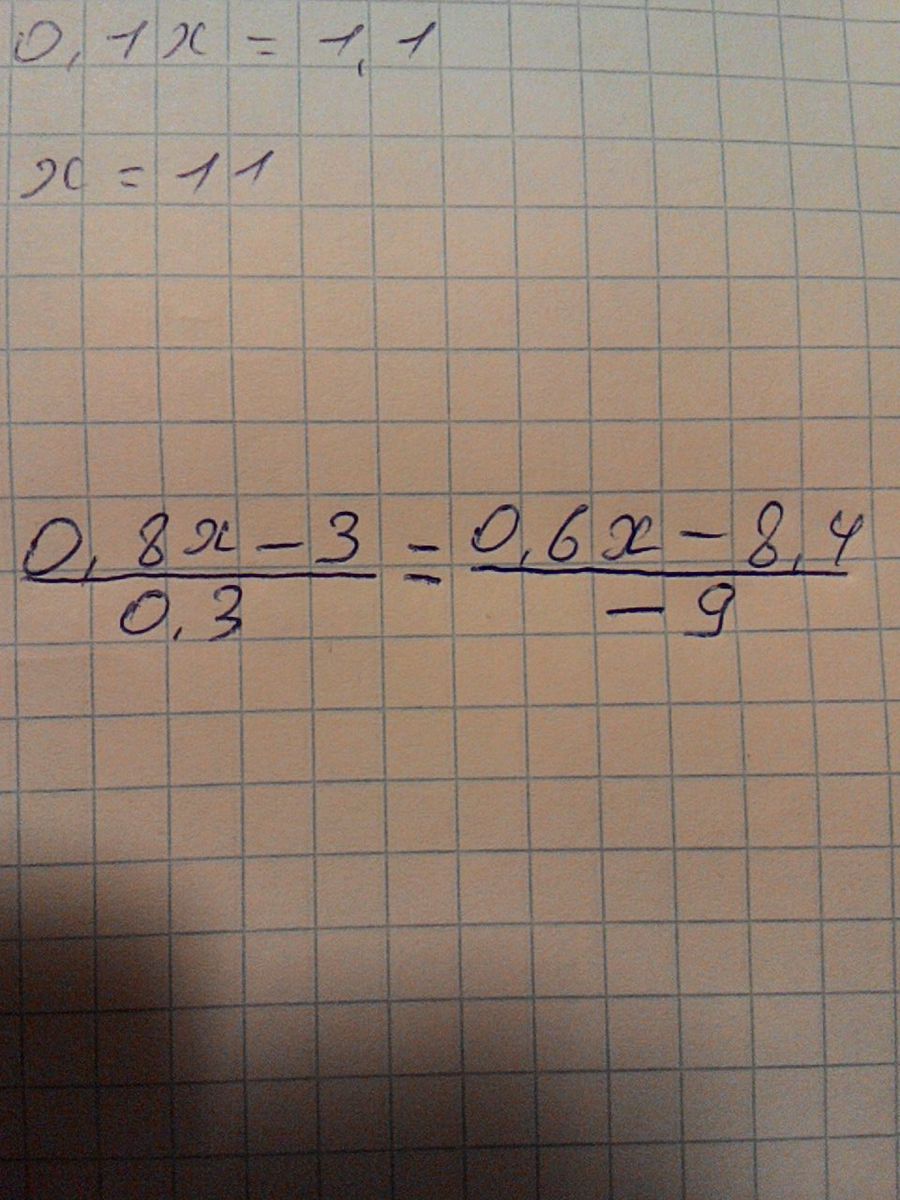 0,1x = 1,1
x = 11
0,8x - 3 = 0,6x - 8,4
0,3 - 9